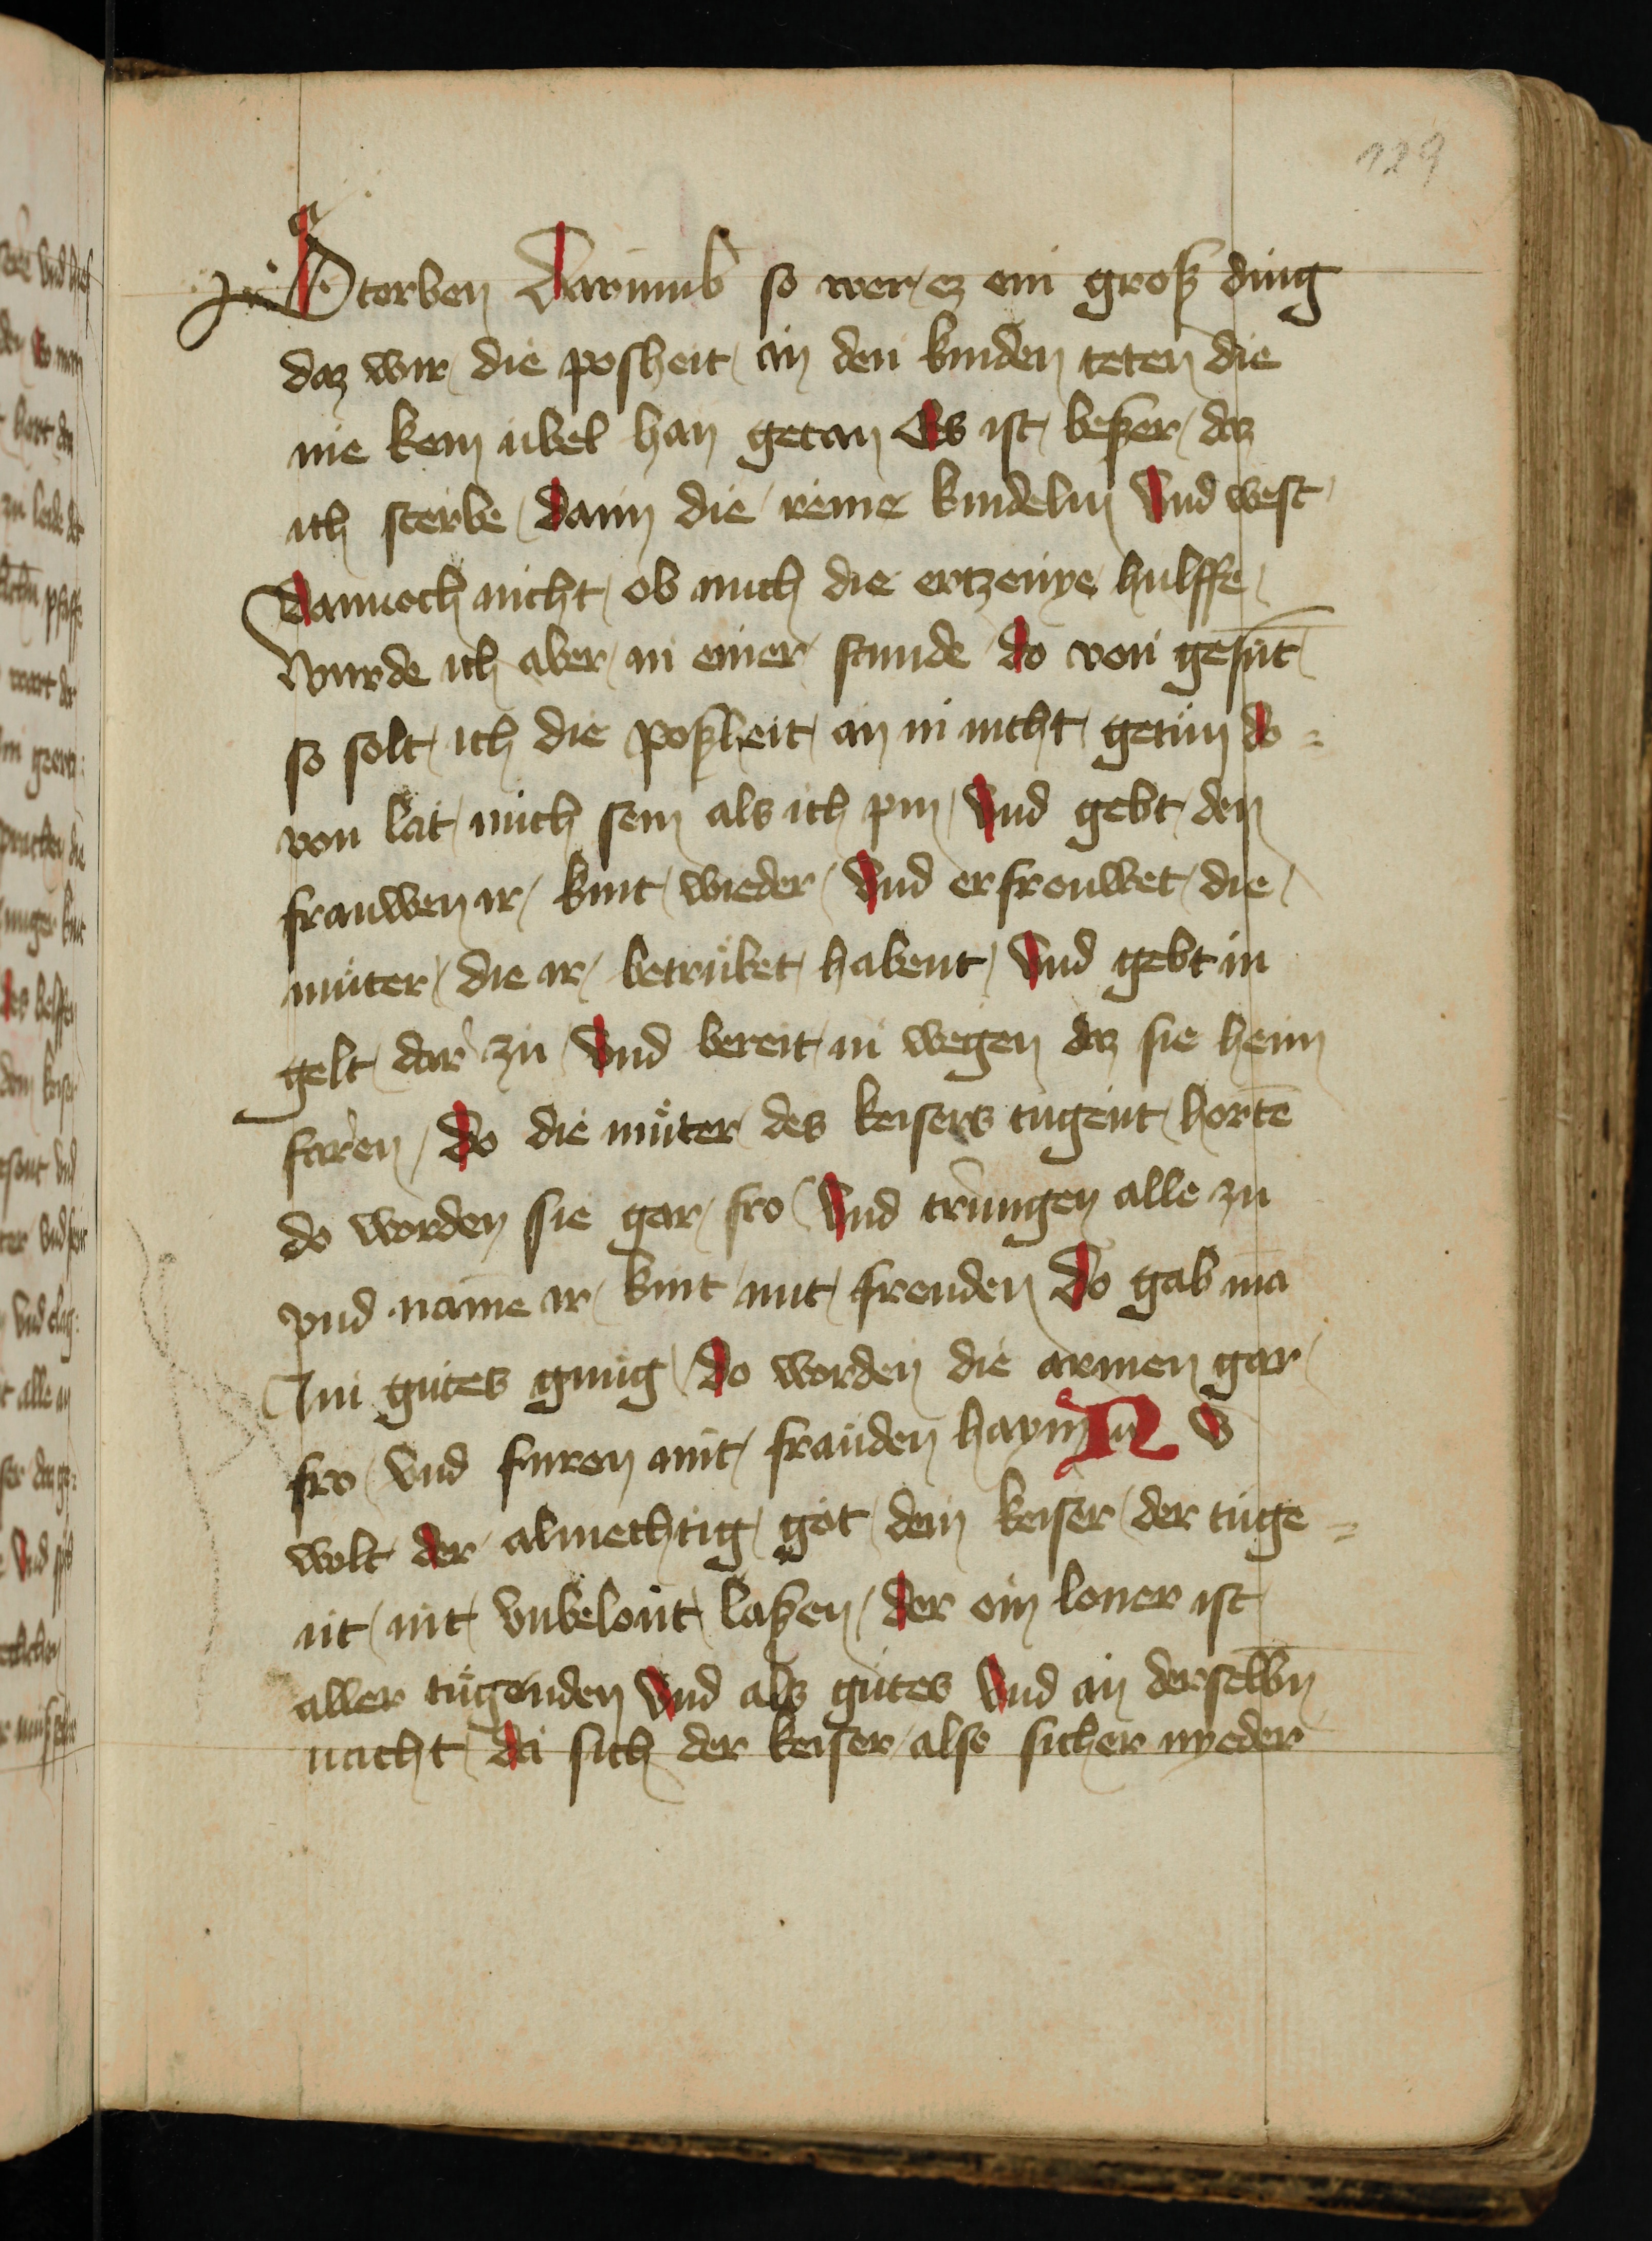 129
Sterben Darumb so wer ez ein groß ding
daz wir die posheit an den kinden teten die
nie kein ubel han getan Es ist beßer daz
ich sterbe dann die reine kindelin Vnd west
dannoch nicht ob mich die ertzenye hulffe
Wurde ich aber in einer stunde do von gesūt
so solt ich die poßheit an in nicht getun do
von lat mich sein als ich pin Vnd gebt den
frauwen ir kint wieder Vnd erfrouwet die
muͤter die ir betruͤbet habent Vnd gebt in
gelt dar zu Vnd bereit in wegen daz sie heim
faren Do die muͤter des keisers tugent hortē
do worden sie gar fro Vnd trungen alle zu
vnd namē ir kint mit freuden Do gab mā
In gutes gnug Do worden die armen gar
fro Vnd furen mit frauden haym Nu
wolt der almechtig got dem keiser der tuge
nt nit vnbelont laßen der ein loner ist
aller tuͤgenden Vnd alz gutes Vnd an derselbn̄
nacht da sich der keiser also sicher nyeder